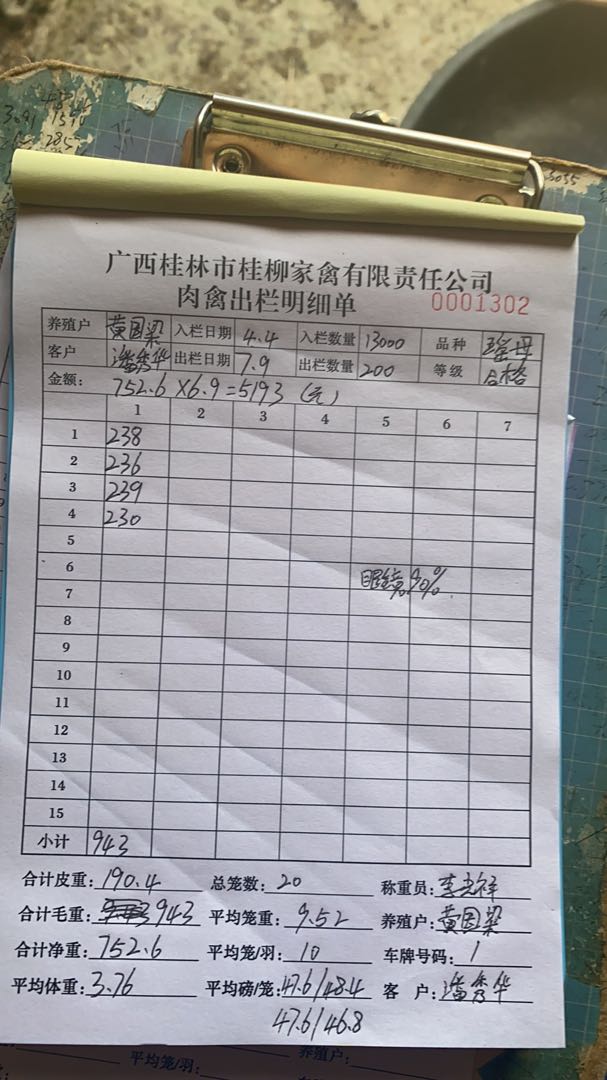 广西桂林市桂柳家禽有限责任公司
肉禽出栏明细单 0001302
养殖户 黄国梁 入栏日期 4.4 入栏数量 13000 品种 瑶母
客户 潘秀华 出栏日期 7.9 出栏数量 200 等级 合格
金额: 752.6×6.9=5193(元)
1 2 3 4 5 6 7
1 238
2 236
3 239
4 230
5
6
眼镜90%
7
8
9
10
11
12
13
14
15
小计 943
合计皮重: 190.4 总笼数: 20 称重员: 李光祥
合计毛重: 943 平均笼重: 9.52 养殖户: 黄国梁
合计净重: 752.6 平均笼/羽: 10 车牌号码: 1
平均体重: 3.76 平均磅/笼: 47.6/48.4 客 户: 潘秀华
47.6/46.8
平均笼/羽: 养殖户: